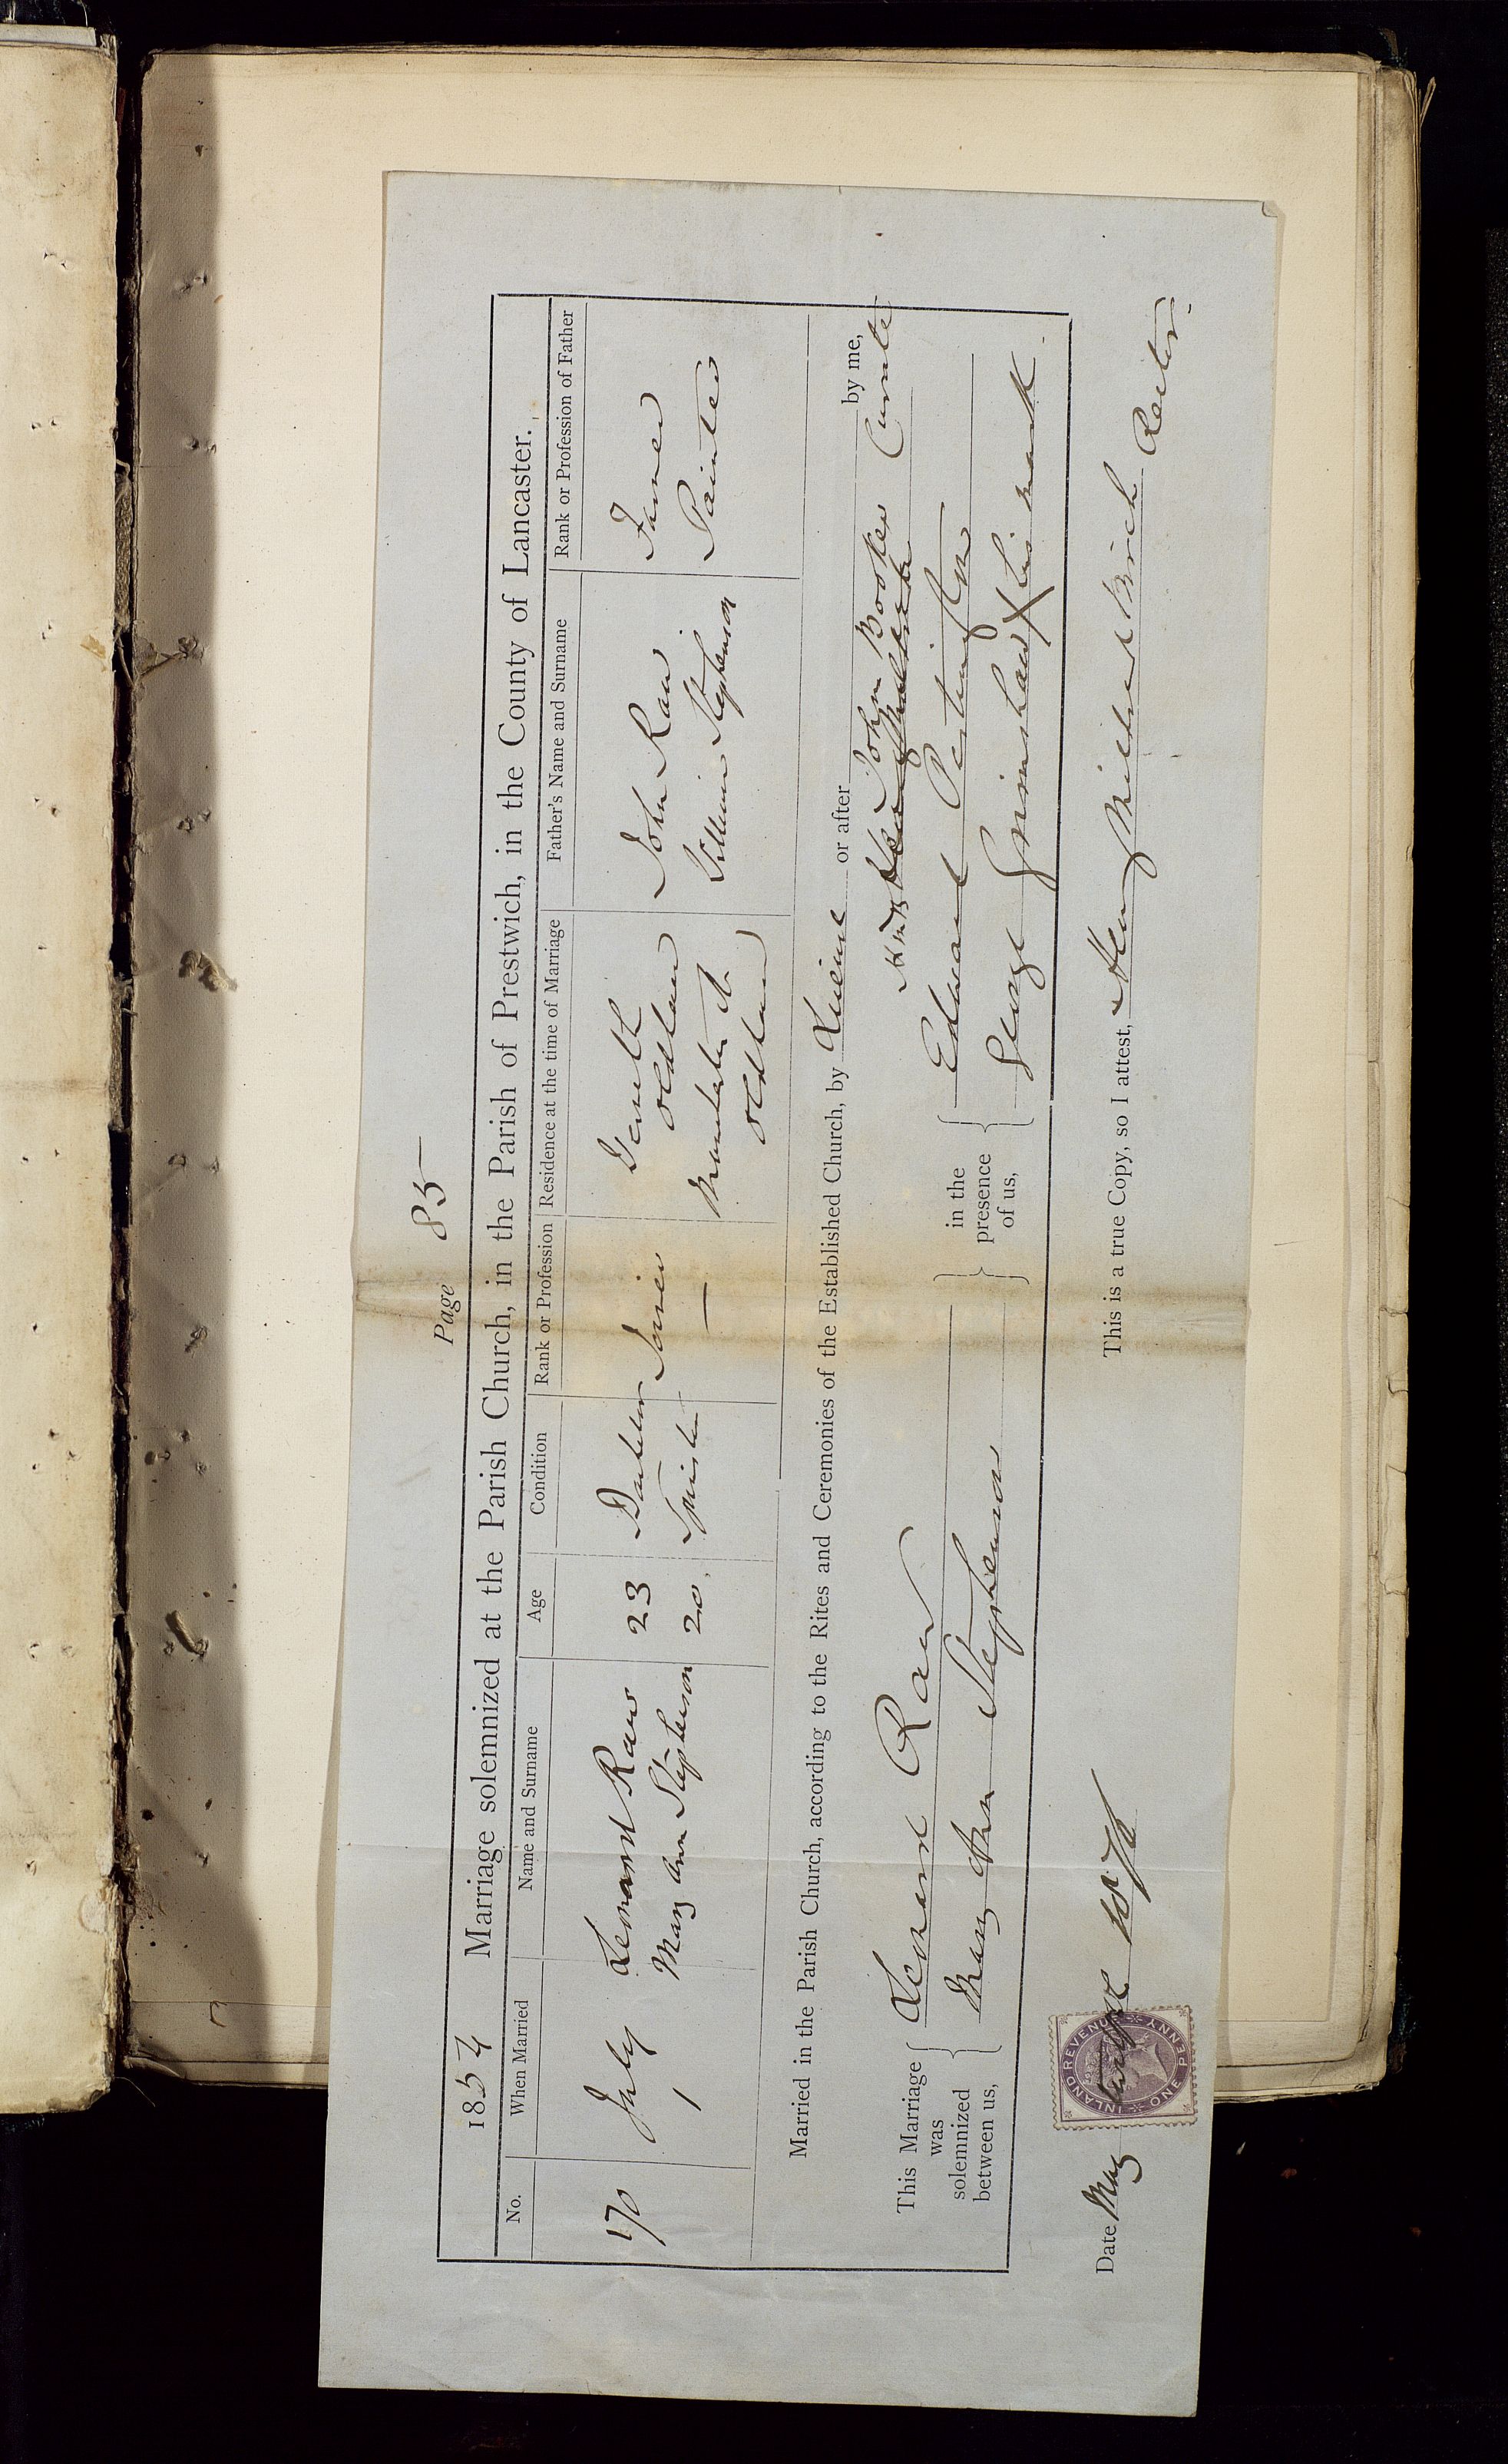 Page 85
1857 Marriage solemnized at the Parish Church, in the Parish of Prestwich, in the County of Lancaster.
No. When Married Name and Surname Age Condition Rank or Profession Residence at the time of Marriage Father's Name and Surname Rank or Profession of Father
170 July Leonard Raw 23 Bachelor Joiner Werneth John Raw Farmer
Oldham
1 Mary Ann Stephenson 20 Spinster — Manchester St. William Stephenson Painter
Oldham
Married in the Parish Church, according to the Rites and Ceremonies of the Established Church, by License or after by me,
John Booker Curate
This Marriage was solemnized between us,
Leonard Raw
Mary Ann Stephenson
in the presence of us,
Edward Partington
George Grimshaw X his mark
Date May 1872
INLAND REVENUE
ONE PENNY
This is a true Copy, so I attest, Henry Mildred Birch Rector.